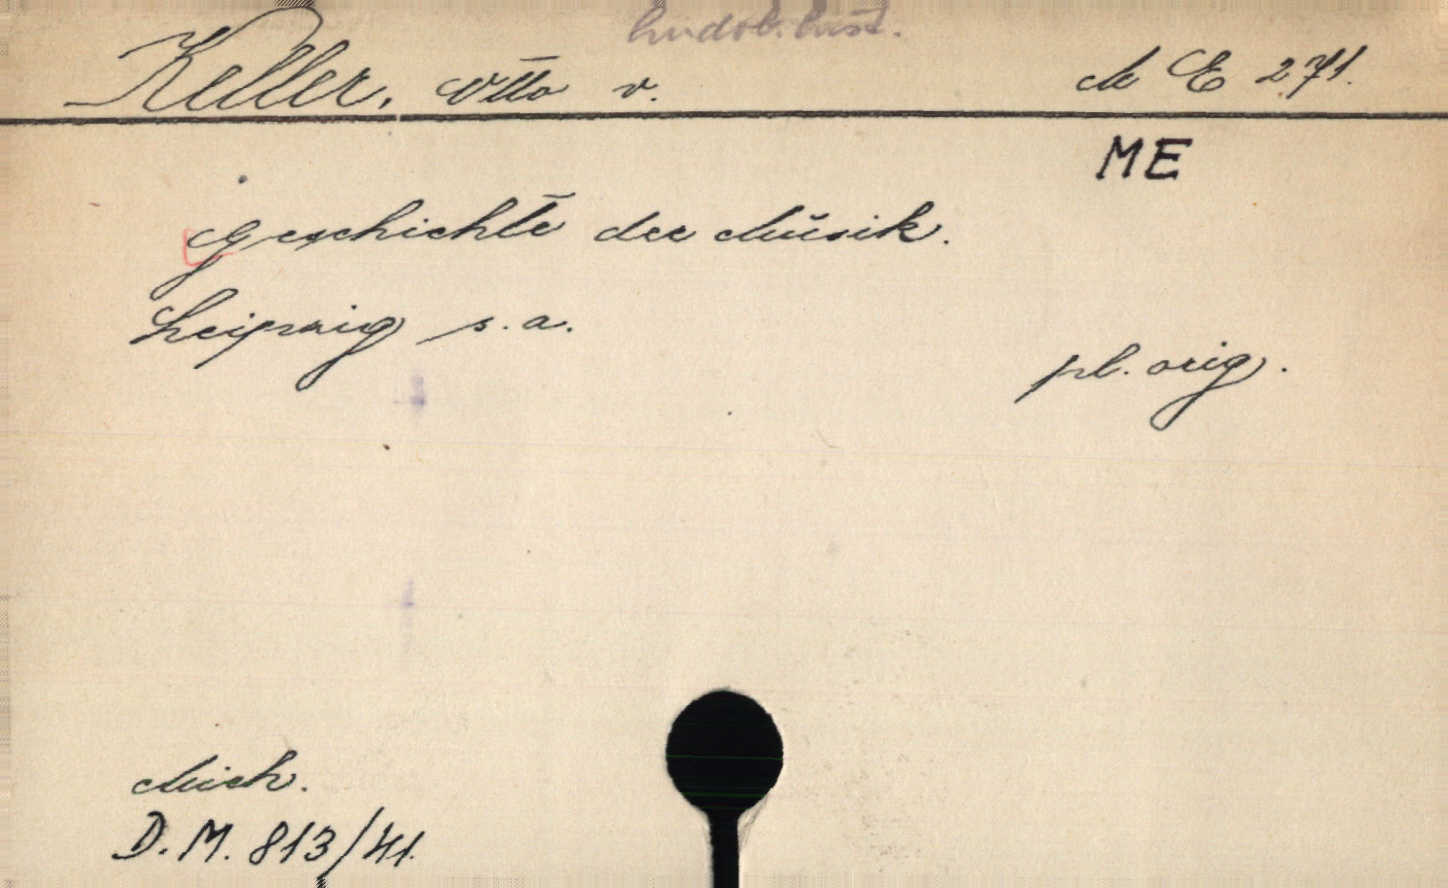 hudob. hist.
Keller, Otto v. M E 271.
ME
Geschichte der Musik.
Leipzig s. a.
pl. orig.
Mich.
D. M. 813/41.